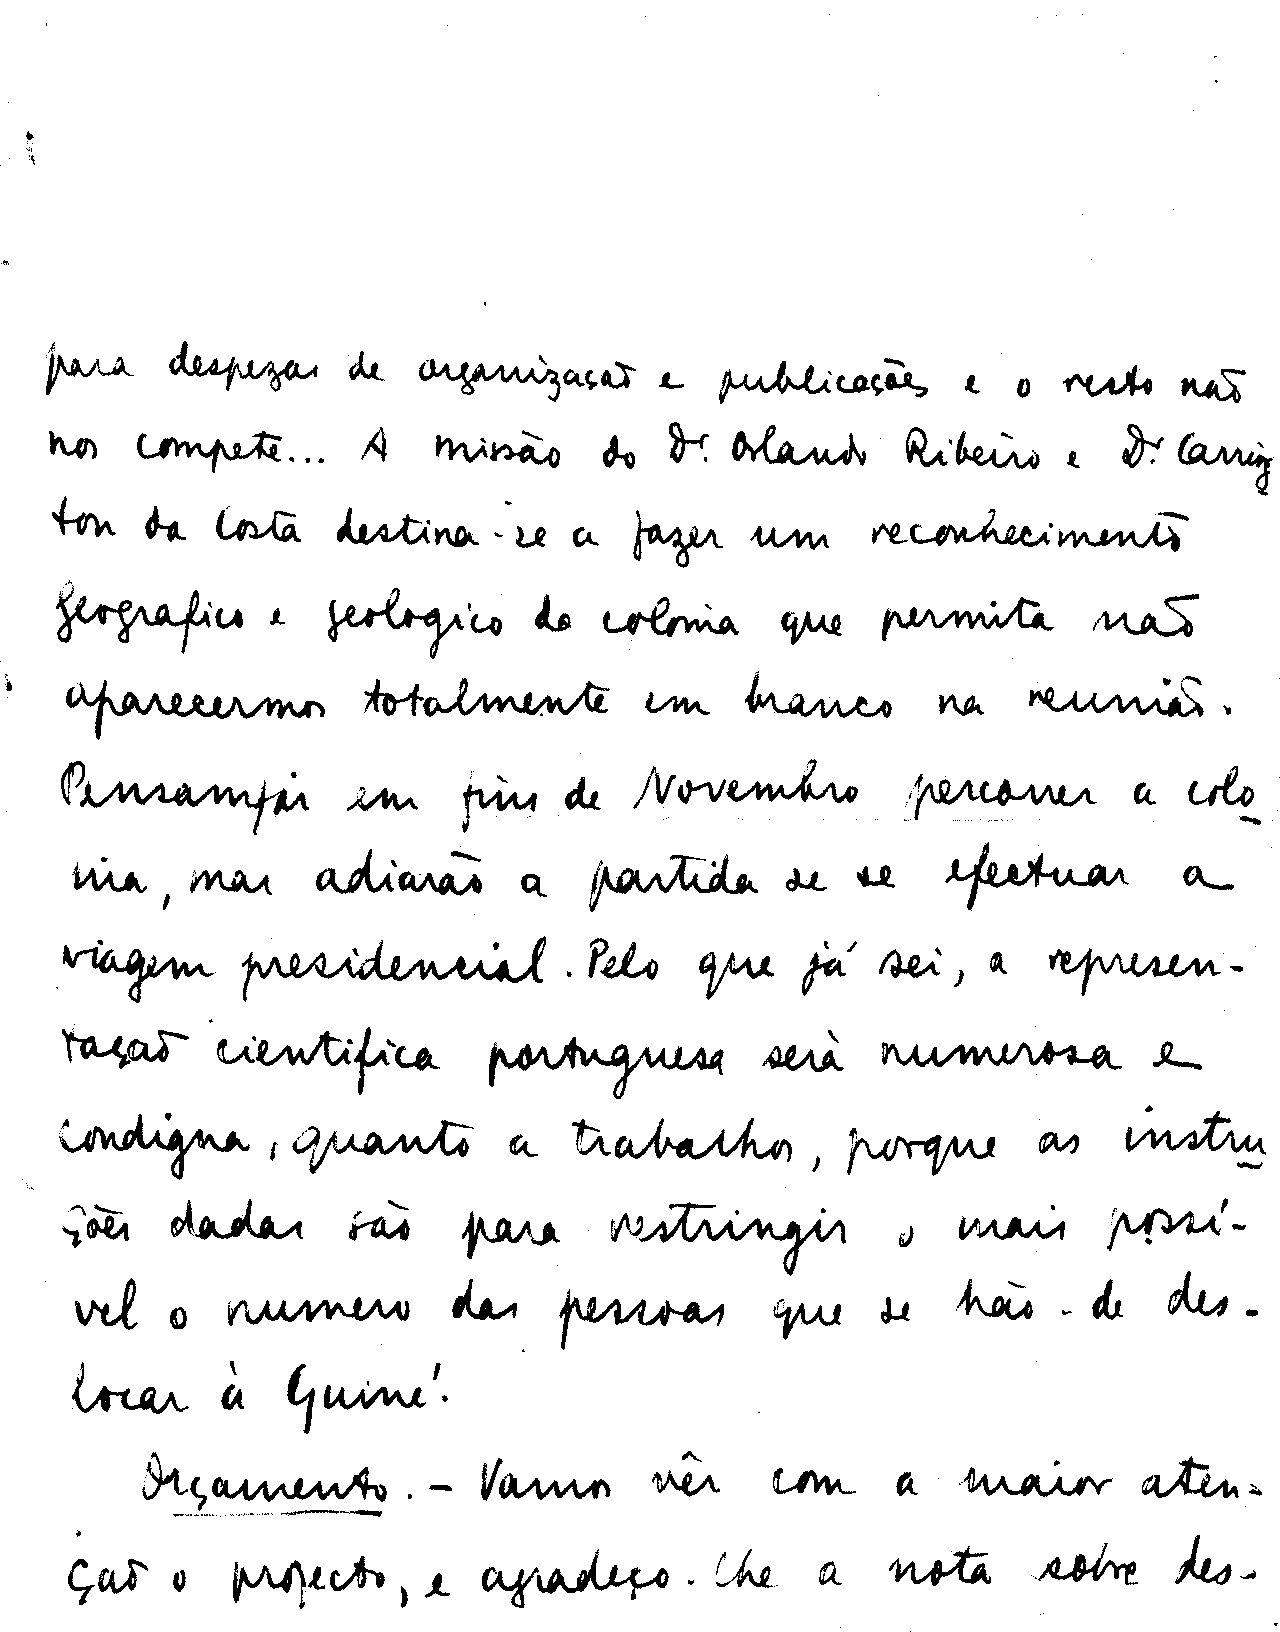 para despezas de organização e publicações e o resto não
nos compete... A missão do Dr. Orlando Ribeiro e Dr. Carring
ton da Costa destina-se a fazer um reconhecimento
geografico e geologico da colonia que permita não
aparecermos totalmente em branco na reunião.
Pensam em fins de Novembro percorrer a colo
nia, mas adiarão a partida se se efectuar a
viagem presidencial. Pelo que já sei, a represen-
tação cientifica portuguesa será numerosa e
condigna, quanto a trabalhos, porque as instru
ções dadas são para restringir o mais possí-
vel o numero das pessoas que se hão-de des-
locar à Guiné.
Orçamento. - Vamos vêr com a maior aten-
ção o projecto, e agradeço-lhe a nota sobre des-